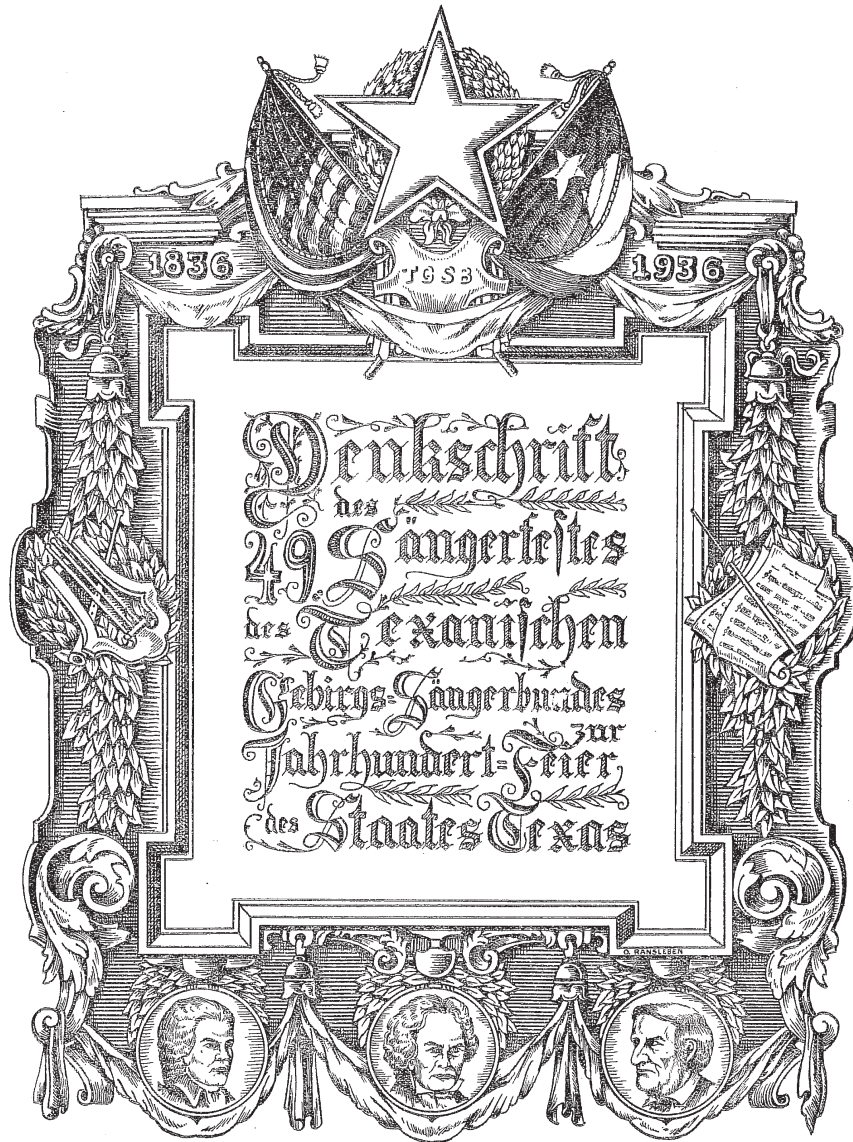 1836
TGSB
1936
Denkschrift
des
49 Sängerfestes
des Texanischen
Gebirgs=Sängerbundes
zur
Jahrhundert=Feier
des Staates Texas
O. RANSLEBEN